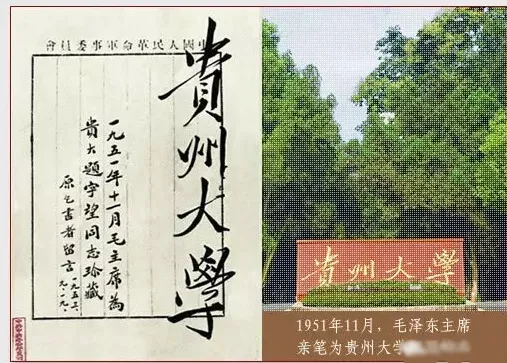 中國人民革命軍事委員會
貴州大學
一九五一年十一月毛主席為
貴大題字望同志珍藏
原乞書者留言
一九五三、
九、一九、
貴州大學
1951年11月，毛泽东主席
亲笔为贵州大学